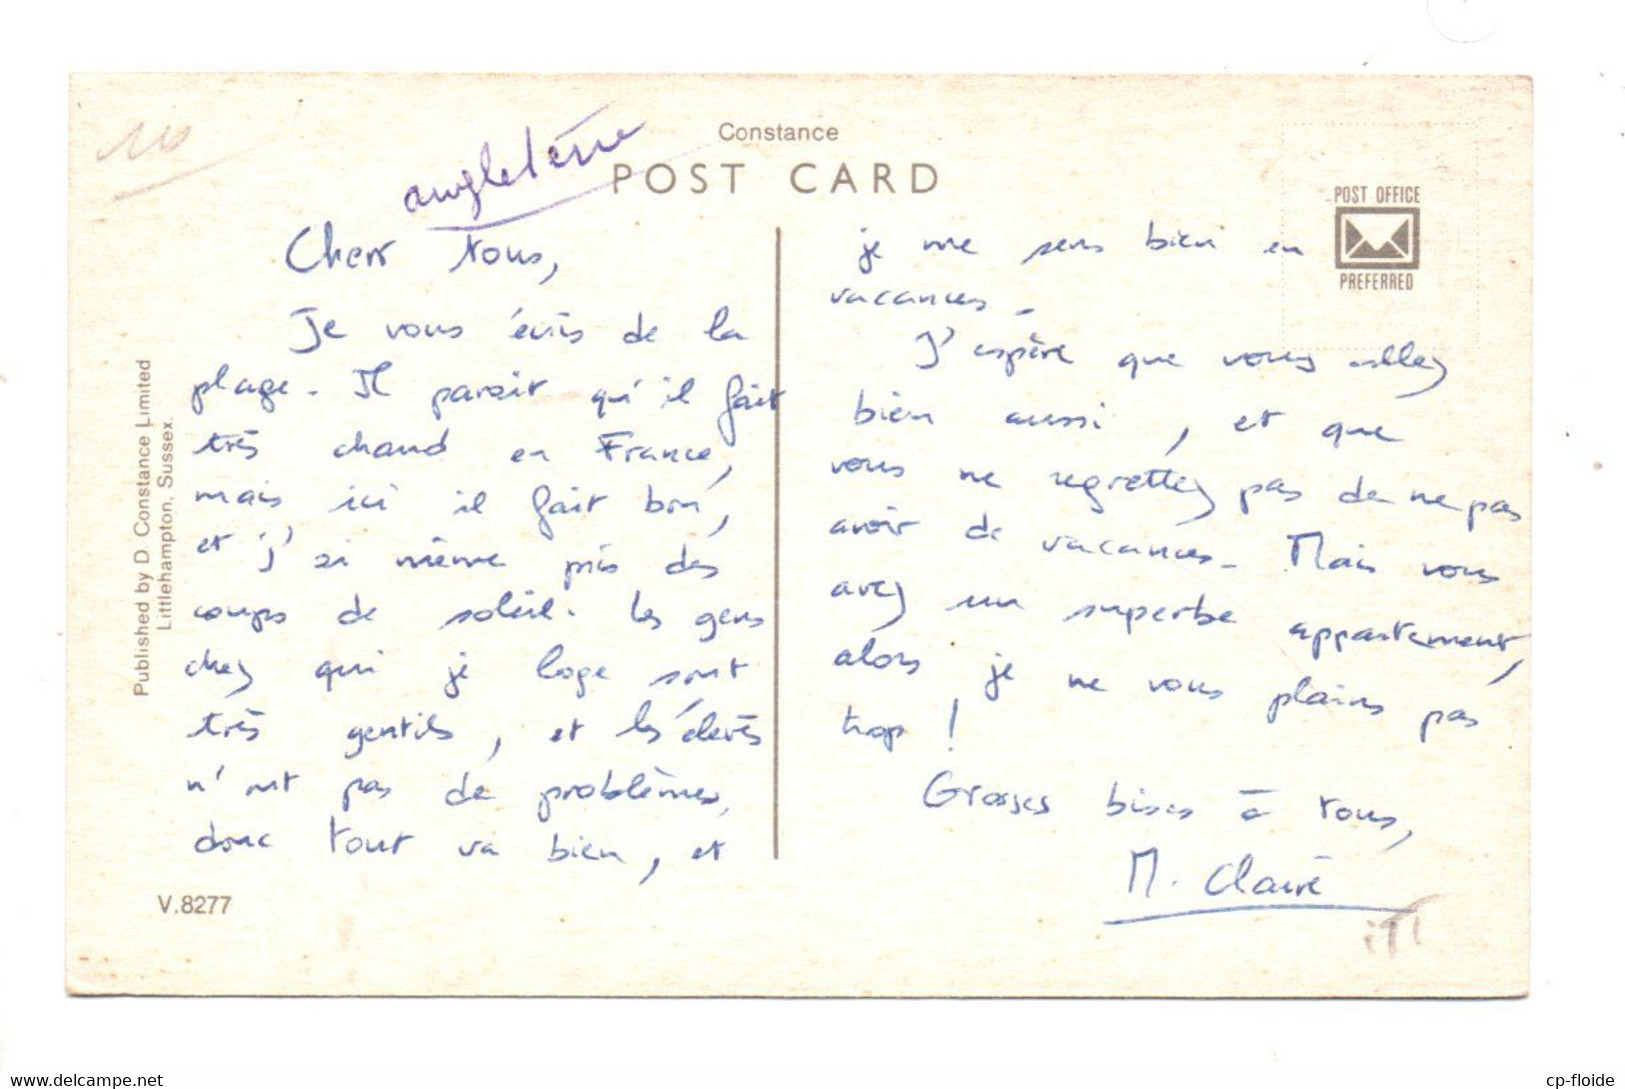 Constance
POST CARD
angleterre
POST OFFICE
PREFERRED
Published by D. Constance Limited
Littlehampton, Sussex.
Chers tous,
Je vous écris de la
plage. Il parait qu'il fait
très chaud en France,
mais ici il fait bon,
et j'ai même pris des
coups de soleil. Les gens
chez qui je loge sont
très gentils, et les élèves
n'ont pas de problèmes,
donc tout va bien, et
V.8277
je me sens bien en
vacances.
J'espère que vous allez
bien aussi, et que
vous ne regrettez pas de ne pas
avoir de vacances. Mais vous
avez un superbe appartement,
alors je ne vous plains pas
trop !
Grosses bises à tous,
M. Claire
www.delcampe.net
cp-floide